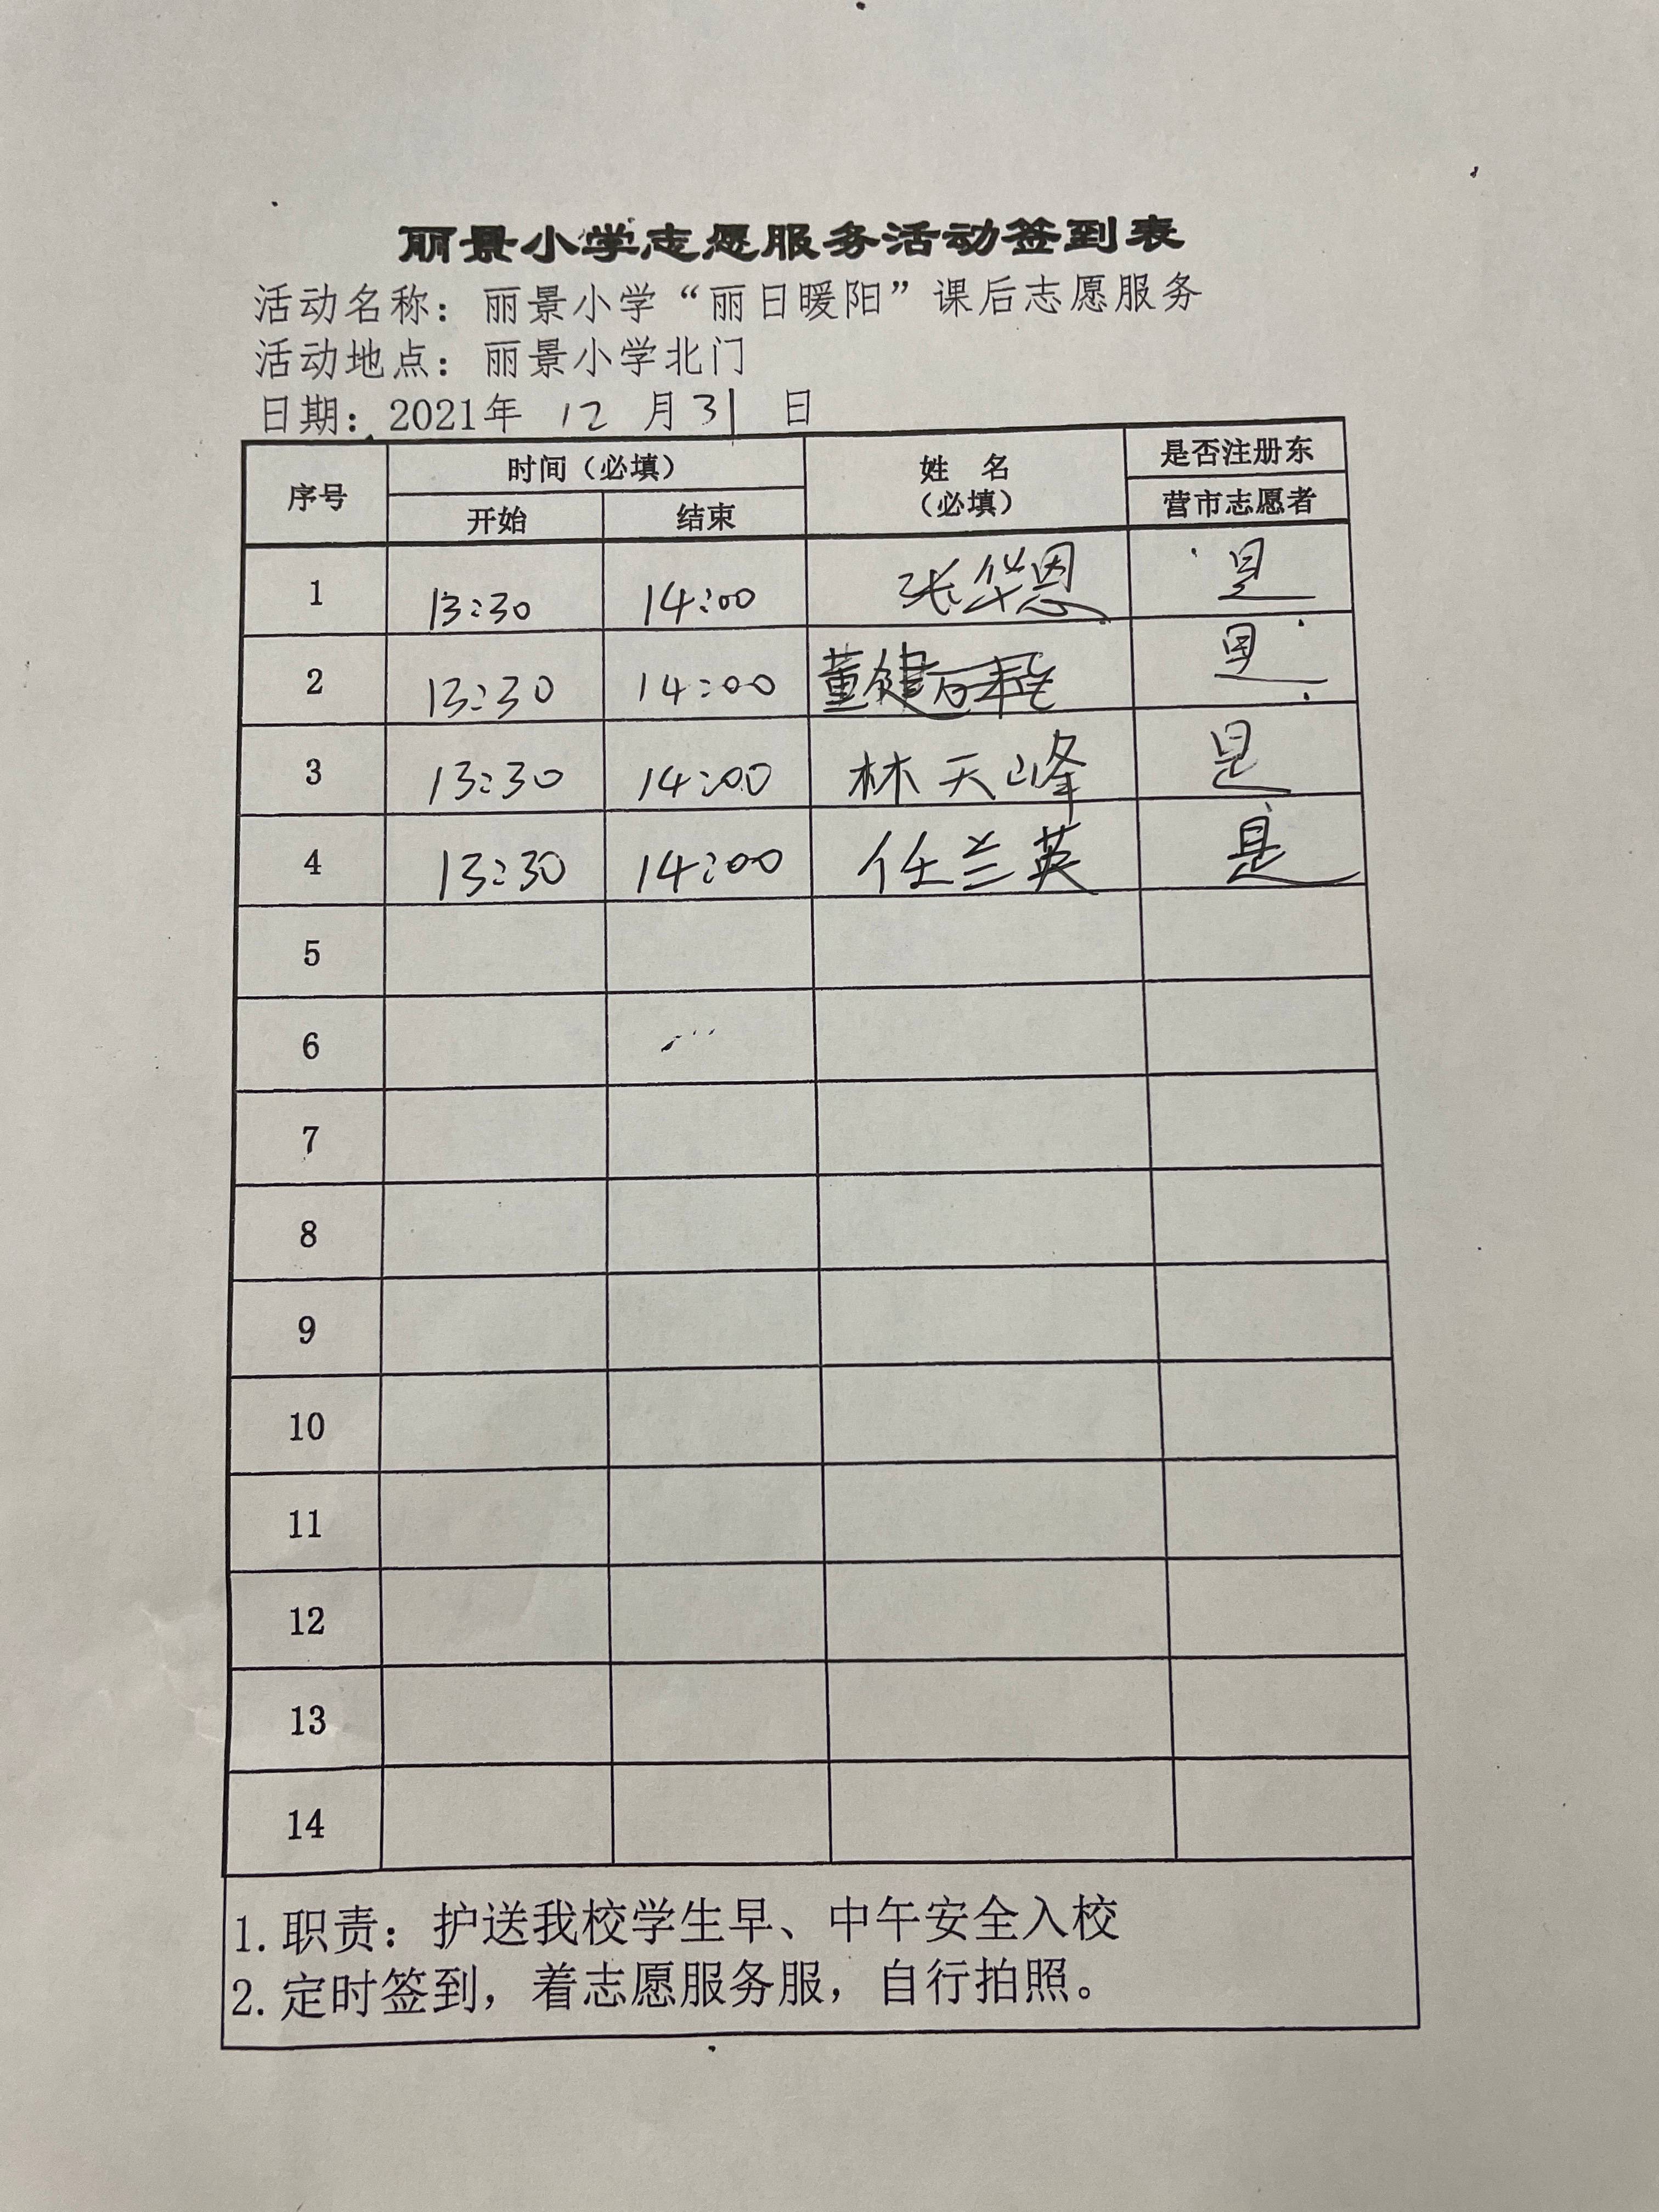 丽景小学志愿服务活动签到表
活动名称：丽景小学“丽日暖阳”课后志愿服务
活动地点：丽景小学北门
日期：2021年 12 月 31 日
序号 时间（必填） 姓 名（必填） 是否注册东营市志愿者
开始 结束
1 13:30 14:00 张华恩 是
2 13:30 14:00 董健 是
3 13:30 14:00 林天峰 是
4 13:30 14:00 任兰英 是
5
6
7
8
9
10
11
12
13
14
1. 职责：护送我校学生早、中午安全入校
2. 定时签到，着志愿服务服，自行拍照。